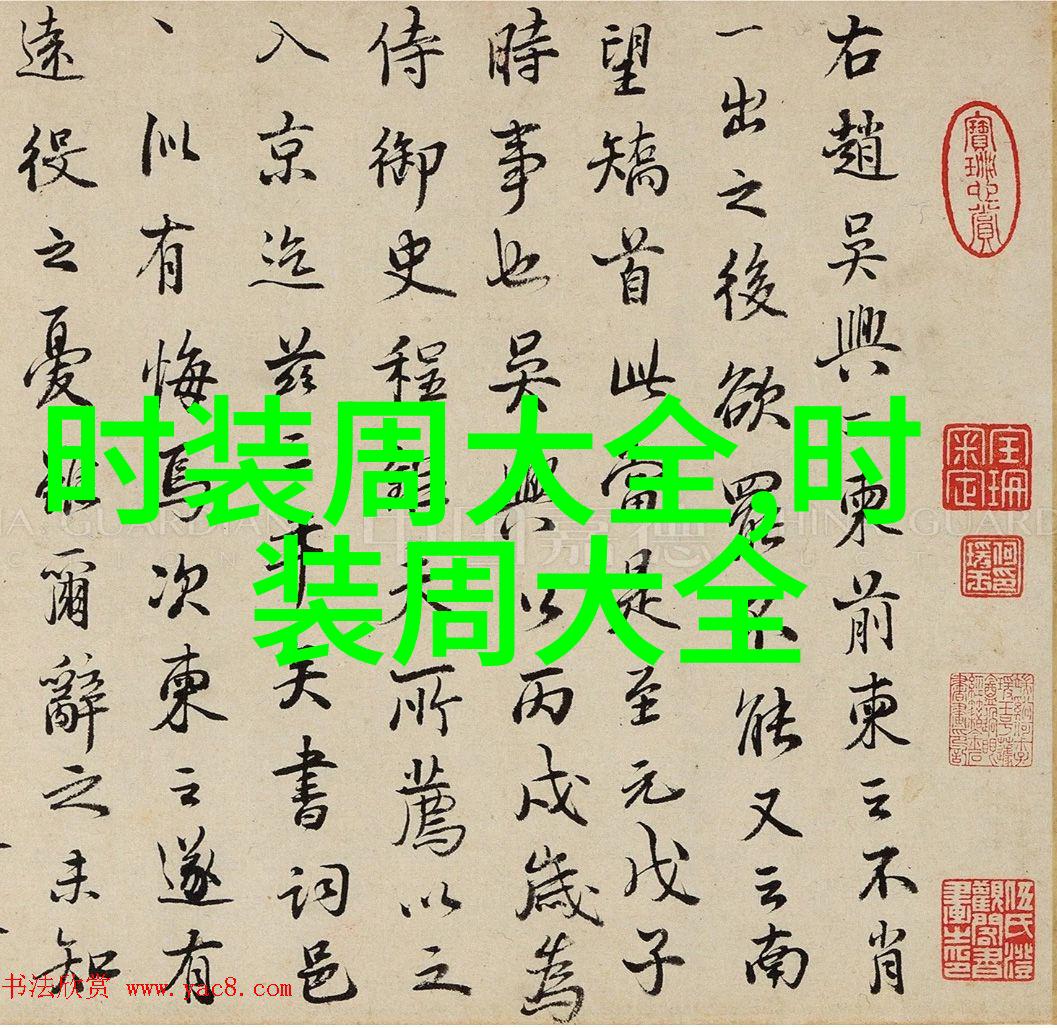 时装周大全,时
装周大全
右趙吳興二柬前柬云不肖
一出之後欲罷不能又云南
望矯首此當是至元戊子
時事也吳興以丙戌歲為
侍御史程夫所薦以之
入京迄茲二年矣書詞邑
、似有悔焉次柬云遂有
遠役之憂雖爾辭之未知
中国嘉德
书法欣赏 www.yac8.com